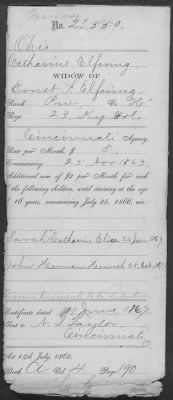 Increase
No. 23.550.
Ohio
Catharine Elfering,
WIDOW OF
Ernst Elfering
Rank Pri Co. "H"
Regt 23. Ky Vol
Cincinnati Agency.
Rate per Month, $ 8.
Commencing 25 Nov 1863.
Additional sum of $2 per Month for each of
the following children, until arriving at the age of
16 years, commencing July 25, 1866, viz:
Sarah Catharine Elise 24 Jan
John Herman Heinrich
Former payments to be deducted
Certificate dated 11 June 1867
Sent to N. S. Taylor
Cincinnati
O.
Act 14th July, 1862.
Book A Vol. 4 Page 190